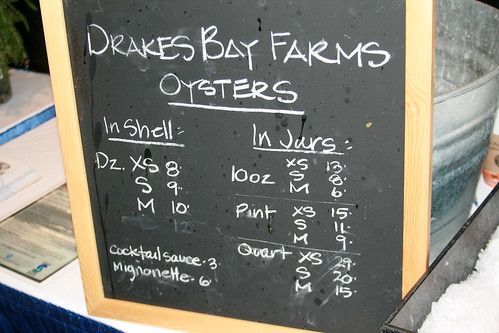 DRAKES BAY FARMS
OYSTERS
In Shell:
Dz. XS 8.
S 9.
M 10.
12.
cocktail sauce . 3.
mignonette . 6.
In Jars:
XS 13.
10oz S 8.
M 6.
Pint XS 15.
S 11.
M 9.
Quart XS 29.
S 20.
M 15.